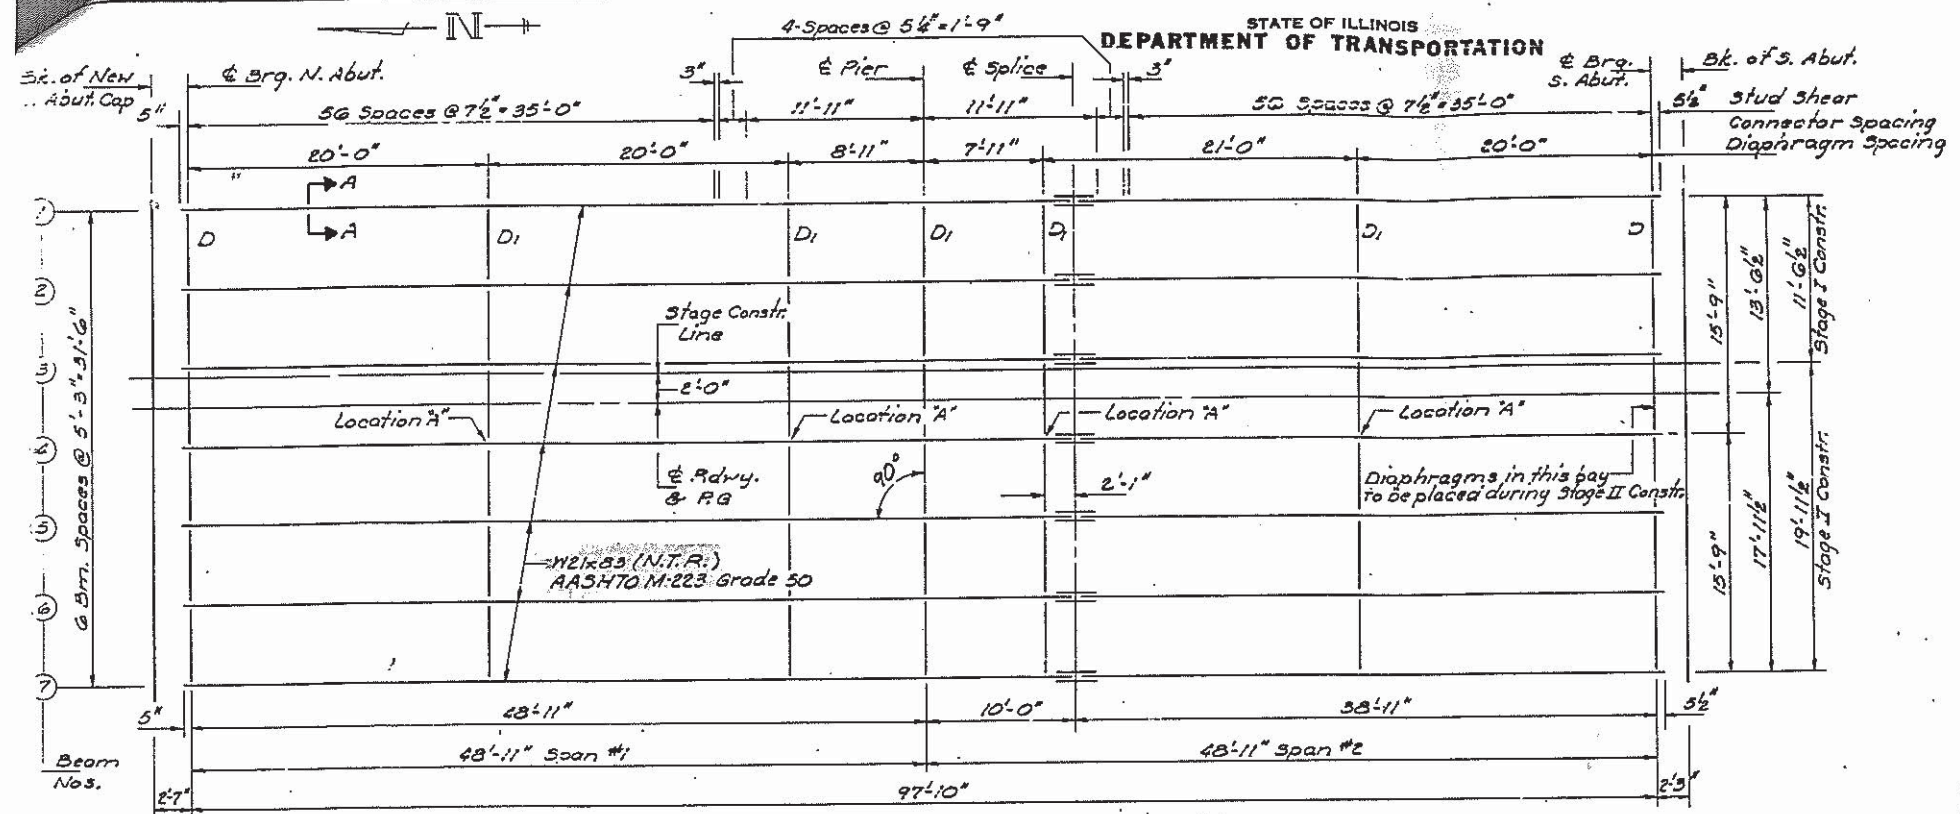 N
4-Spaces @ 5¼"=1'-9"
STATE OF ILLINOIS
DEPARTMENT OF TRANSPORTATION
Bk. of New
Abut. Cap
℄ Brg. N. Abut.
3"
℄ Pier
℄ Splice
3"
℄ Brg.
S. Abut.
Bk. of S. Abut.
5"
56 Spaces @ 7½"=35'-0"
11'-11"
11'-11"
56 Spaces @ 7½"=35'-0"
5½"
Stud Shear
Connector Spacing
Diaphragm Spacing
20'-0"
20'-0"
8'-11"
7'-11"
21'-0"
20'-0"
A
A
1
D
D1
D1
D1
D1
D1
D
2
Stage Constr.
Line
3
2'-0"
Location "A"
Location "A"
Location "A"
Location "A"
4
℄ Rdwy.
& P.G
90°
2'-1"
Diaphragms in this bay
to be placed during Stage II Constr.
5
W21x83 (N.T.R.)
AASHTO M-223 Grade 50
6
7
6 Bm. Spaces @ 5'-3"=31'-6"
15'-9"
13'-6½"
11'-6½"
Stage I Constr.
15'-9"
17'-11½"
19'-11½"
Stage I Constr.
5"
48'-11"
10'-0"
38'-11"
5½"
48'-11" Span #1
48'-11" Span #2
Beam
Nos.
2'-7"
97'-10"
2'-3"